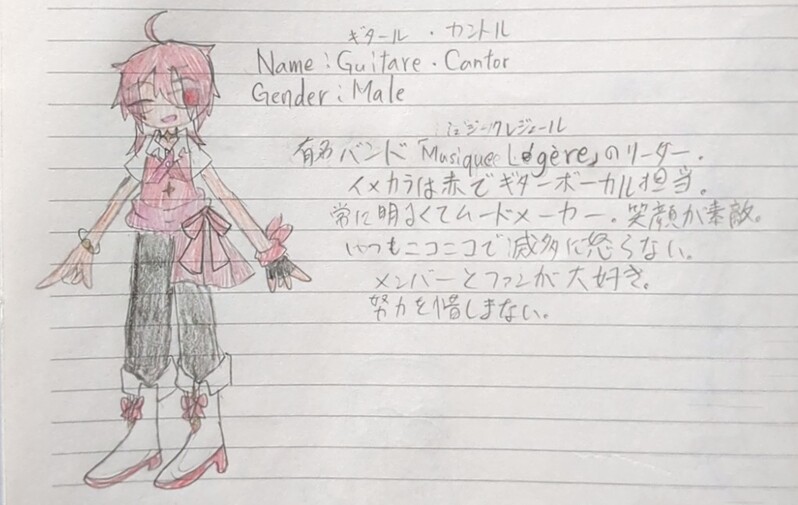 ギタール ・ カントル
Name : Guitare ・ Cantor
Gender : Male
ミュジークレジェール
有名バンド「Musique Légère」のリーダー。
イメカラは赤でギターボーカル担当。
常に明るくてムードメーカー。笑顔が素敵。
いつもニコニコで滅多に怒らない。
メンバーとファンが大好き。
努力を惜しまない。